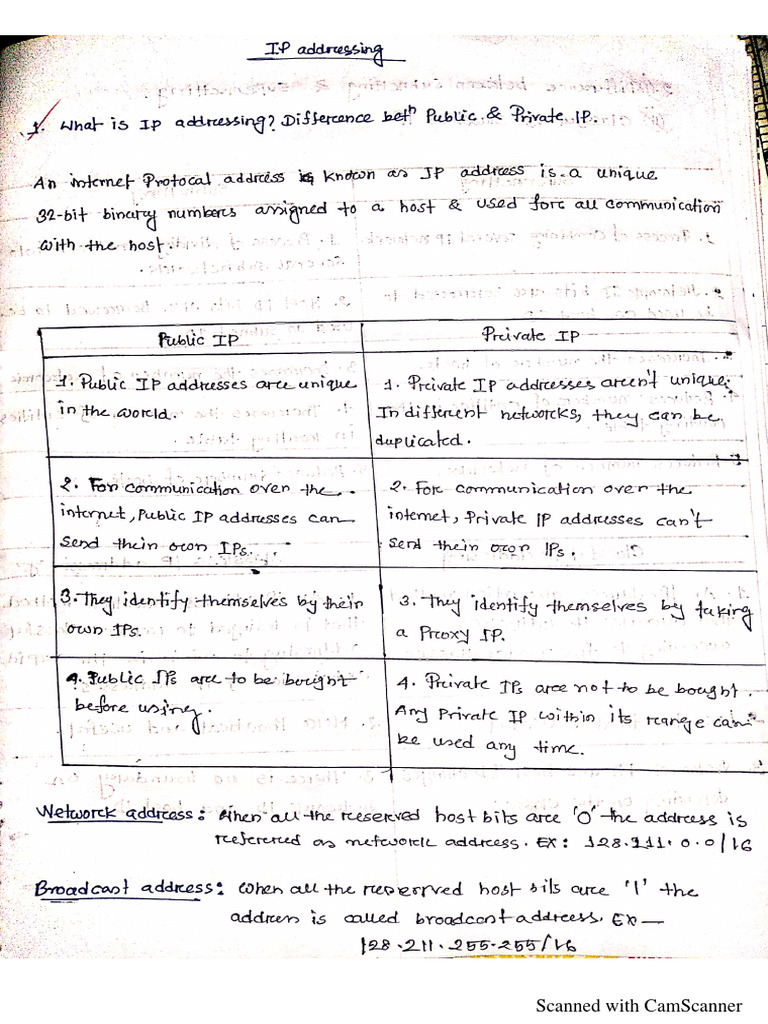 I.P addressing
1. What is IP addressing? Difference betn Public & Private IP.
An internet Protocal address is known as IP address is a unique
32-bit binary numbers assigned to a host & used for all communication
with the host.
Public IP
Private IP
1. Public IP addresses are unique
in the world.
1. Private IP addresses aren't unique.
In different networks, they can be
duplicated.
2. For communication over the
internet, Public IP addresses can
send their own IPs.
2. For communication over the
internet, Private IP addresses can't
send their own IPs.
3. They identify themselves by their
own IPs.
3. They identify themselves by taking
a Proxy IP.
4. Public IPs are to be bought
before using.
4. Private IPs are not to be bought.
Any private IP within its range can
be used any time.
Network address: When all the reserved host bits are '0' the address is
referered as network address. EX: 128.211.0.0/16
Broadcast address: When all the reserved host bits are '1' the
address is called broadcast address. EX—
128.211.255.255/16
Scanned with CamScanner